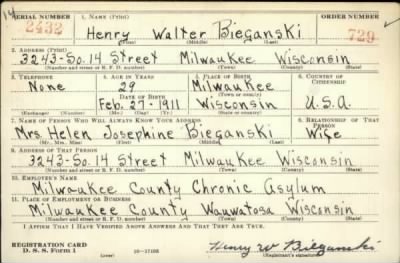 SERIAL NUMBER 1. NAME (Print) ORDER NUMBER
2432 Henry Walter Bieganski 729
(First) (Middle) (Last)
2. ADDRESS (Print)
3243-So. 14 Street Milwaukee Wisconsin
(Number and street or R. F. D. number) (Town) (County) (State)
3. TELEPHONE 4. AGE IN YEARS 5. PLACE OF BIRTH 6. COUNTRY OF CITIZENSHIP
None 29 Milwaukee
DATE OF BIRTH (Town or county)
Feb. 27-1911 Wisconsin U.S.A.
(Exchange) (Number) (Mo.) (Day) (Yr.) (State or country)
7. NAME OF PERSON WHO WILL ALWAYS KNOW YOUR ADDRESS 8. RELATIONSHIP OF THAT PERSON
Mrs. Helen Josephine Bieganski Wife
(Mr., Mrs., Miss) (First) (Middle) (Last)
9. ADDRESS OF THAT PERSON
3243-So. 14 Street Milwaukee Wisconsin
(Number and street or R. F. D. number) (Town) (County) (State)
10. EMPLOYER'S NAME
Milwaukee County Chronic Asylum
11. PLACE OF EMPLOYMENT OR BUSINESS
Milwaukee County Wauwatosa Wisconsin
(Number and street or R. F. D. number) (Town) (County) (State)
I AFFIRM THAT I HAVE VERIFIED ABOVE ANSWERS AND THAT THEY ARE TRUE.
REGISTRATION CARD
D. S. S. Form 1 (over) 16-17105 Henry W Bieganski
(Registrant's signature)